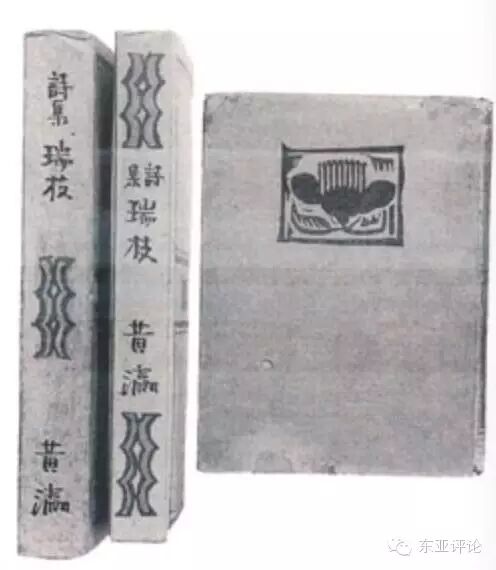 詩集 瑞枝
黄瀛
詩集 瑞枝
黄瀛
东亚评论